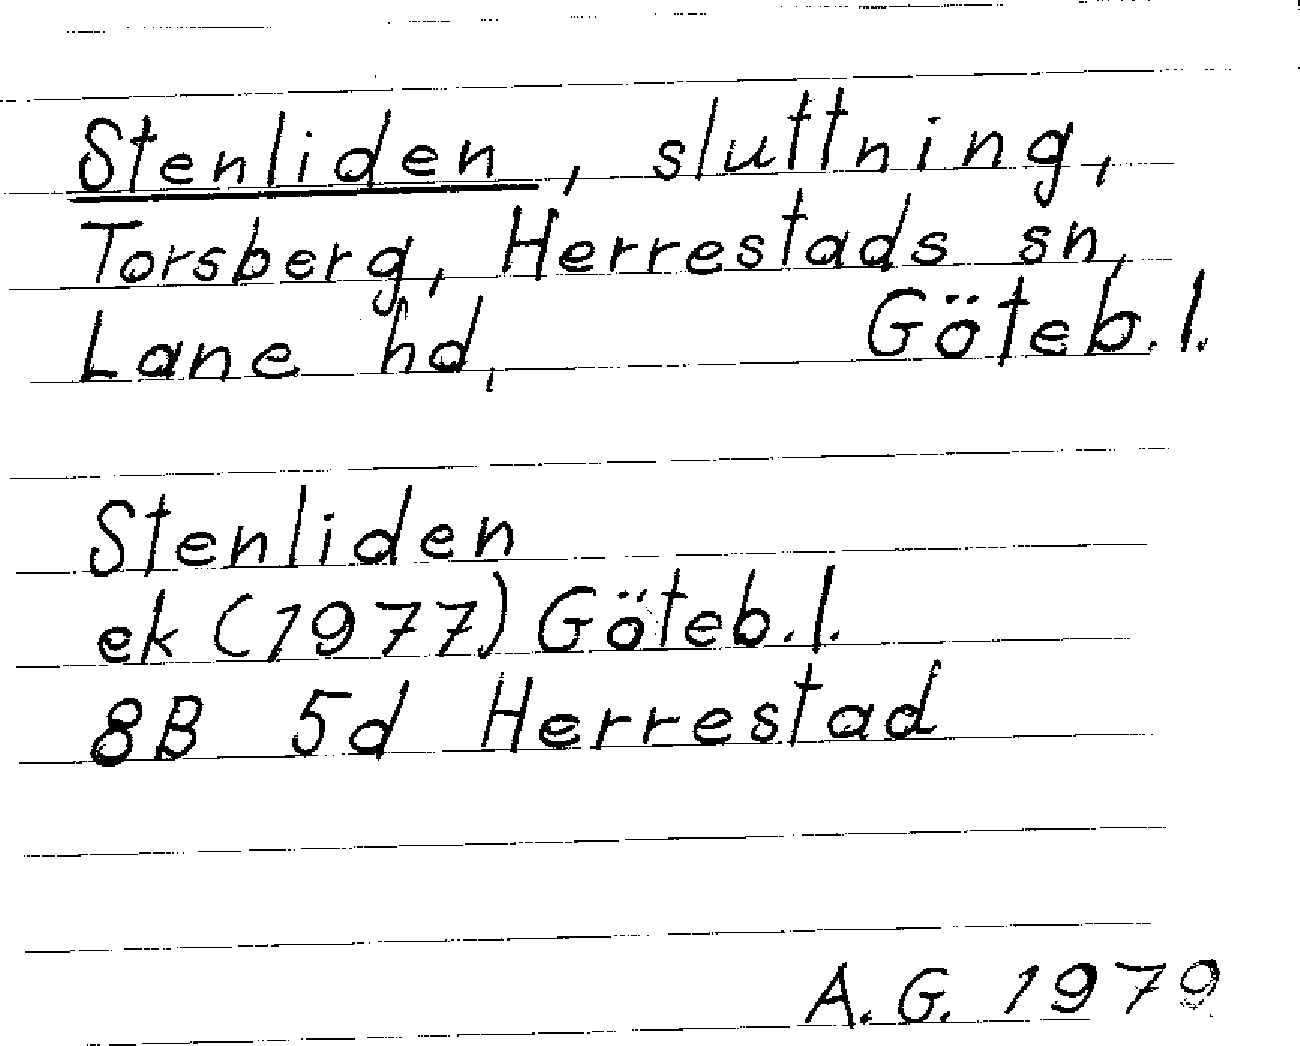 Stenliden, sluttning,
Torsberg, Herrestads sn,
Lane hd, Göteb. l.
Stenliden
ek (1977) Göteb. l.
8B 5d Herrestad
A. G. 1979